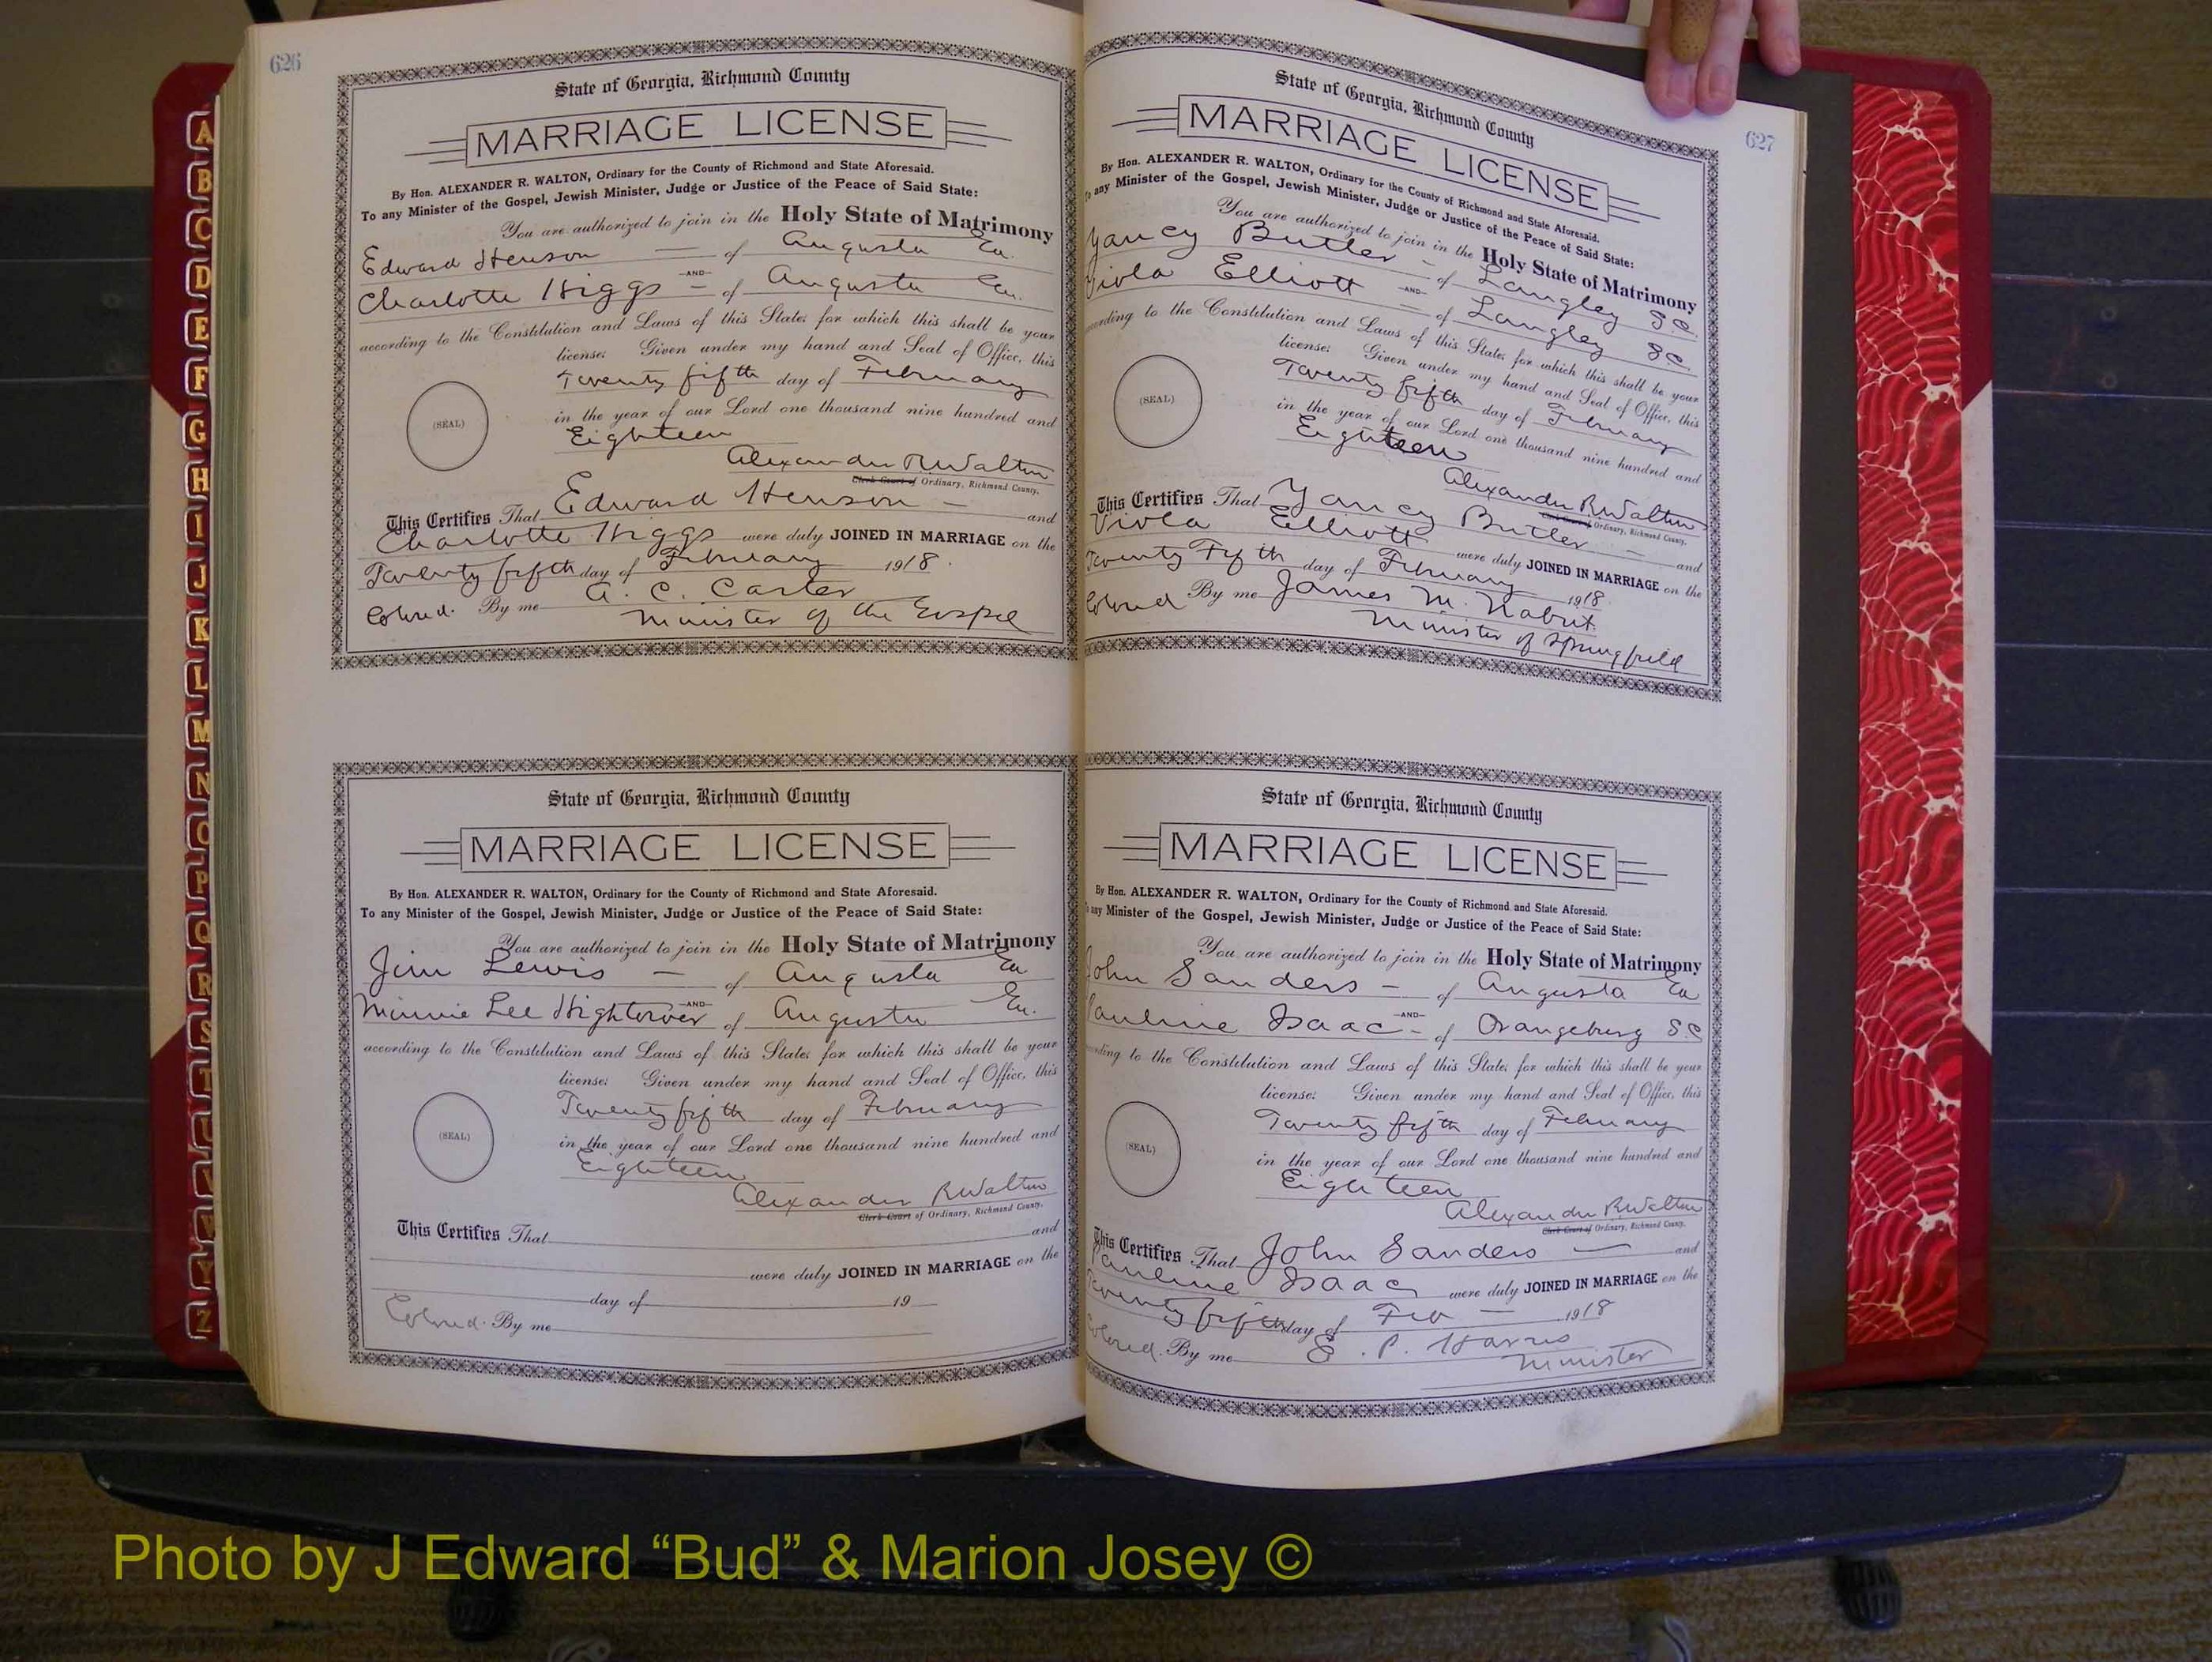 A
B
C
D
E
F
G
H
I
J
K
L
M
N
O
P
Q
R
S
T
U
V
W
Y
Z
626
State of Georgia, Richmond County
MARRIAGE LICENSE
By Hon. ALEXANDER R. WALTON, Ordinary for the County of Richmond and State Aforesaid.
To any Minister of the Gospel, Jewish Minister, Judge or Justice of the Peace of Said State:
You are authorized to join in the Holy State of Matrimony
Edward Henson — of Augusta Ga.
—AND—
Charlotte Higgs — of Augusta Ga.
according to the Constitution and Laws of this State; for which this shall be your
license: Given under my hand and Seal of Office, this
Twenty fifth day of February
(SEAL)
in the year of our Lord one thousand nine hundred and
Eighteen
Alexander R Walton
Clerk Court of Ordinary, Richmond County.
This Certifies That Edward Henson — and
Charlotte Higgs were duly JOINED IN MARRIAGE on the
Twenty fifth day of February 1918.
Colored. By me A. C. Carter
Minister of the Gospel
State of Georgia, Richmond County
MARRIAGE LICENSE
By Hon. ALEXANDER R. WALTON, Ordinary for the County of Richmond and State Aforesaid.
To any Minister of the Gospel, Jewish Minister, Judge or Justice of the Peace of Said State:
You are authorized to join in the Holy State of Matrimony
Jim Lewis — of Augusta Ga
—AND—
Minnie Lee Hightower of Augusta Ga.
according to the Constitution and Laws of this State; for which this shall be your
license: Given under my hand and Seal of Office, this
Twenty fifth day of February
(SEAL)
in the year of our Lord one thousand nine hundred and
Eighteen
Alexander R Walton
Clerk Court of Ordinary, Richmond County.
This Certifies That and
were duly JOINED IN MARRIAGE on the
day of 19
Colored. By me
627
State of Georgia, Richmond County
MARRIAGE LICENSE
By Hon. ALEXANDER R. WALTON, Ordinary for the County of Richmond and State Aforesaid.
To any Minister of the Gospel, Jewish Minister, Judge or Justice of the Peace of Said State:
You are authorized to join in the Holy State of Matrimony
Yancy Butler — of Langley S.C.
—AND—
Viola Elliott — of Langley S.C.
according to the Constitution and Laws of this State; for which this shall be your
license: Given under my hand and Seal of Office, this
Twenty fifth day of February
(SEAL)
in the year of our Lord one thousand nine hundred and
Eighteen
Alexander R Walton
Clerk Court of Ordinary, Richmond County.
This Certifies That Yancy Butler — and
Viola Elliott were duly JOINED IN MARRIAGE on the
Twenty Fifth day of February 1918.
Colored By me James M. Nabrit.
Minister of Springfield
State of Georgia, Richmond County
MARRIAGE LICENSE
By Hon. ALEXANDER R. WALTON, Ordinary for the County of Richmond and State Aforesaid.
To any Minister of the Gospel, Jewish Minister, Judge or Justice of the Peace of Said State:
You are authorized to join in the Holy State of Matrimony
John Sanders — of Augusta Ga
—AND—
Pauline Isaac — of Orangeburg S.C
according to the Constitution and Laws of this State; for which this shall be your
license: Given under my hand and Seal of Office, this
Twenty fifth day of February
(SEAL)
in the year of our Lord one thousand nine hundred and
Eighteen
Alexander R Walton
Clerk Court of Ordinary, Richmond County.
This Certifies That John Sanders — and
Pauline Isaac were duly JOINED IN MARRIAGE on the
Twenty fifth day of Feb — 1918
Colored. By me E. P. Harris
Minister
Photo by J Edward “Bud” & Marion Josey ©